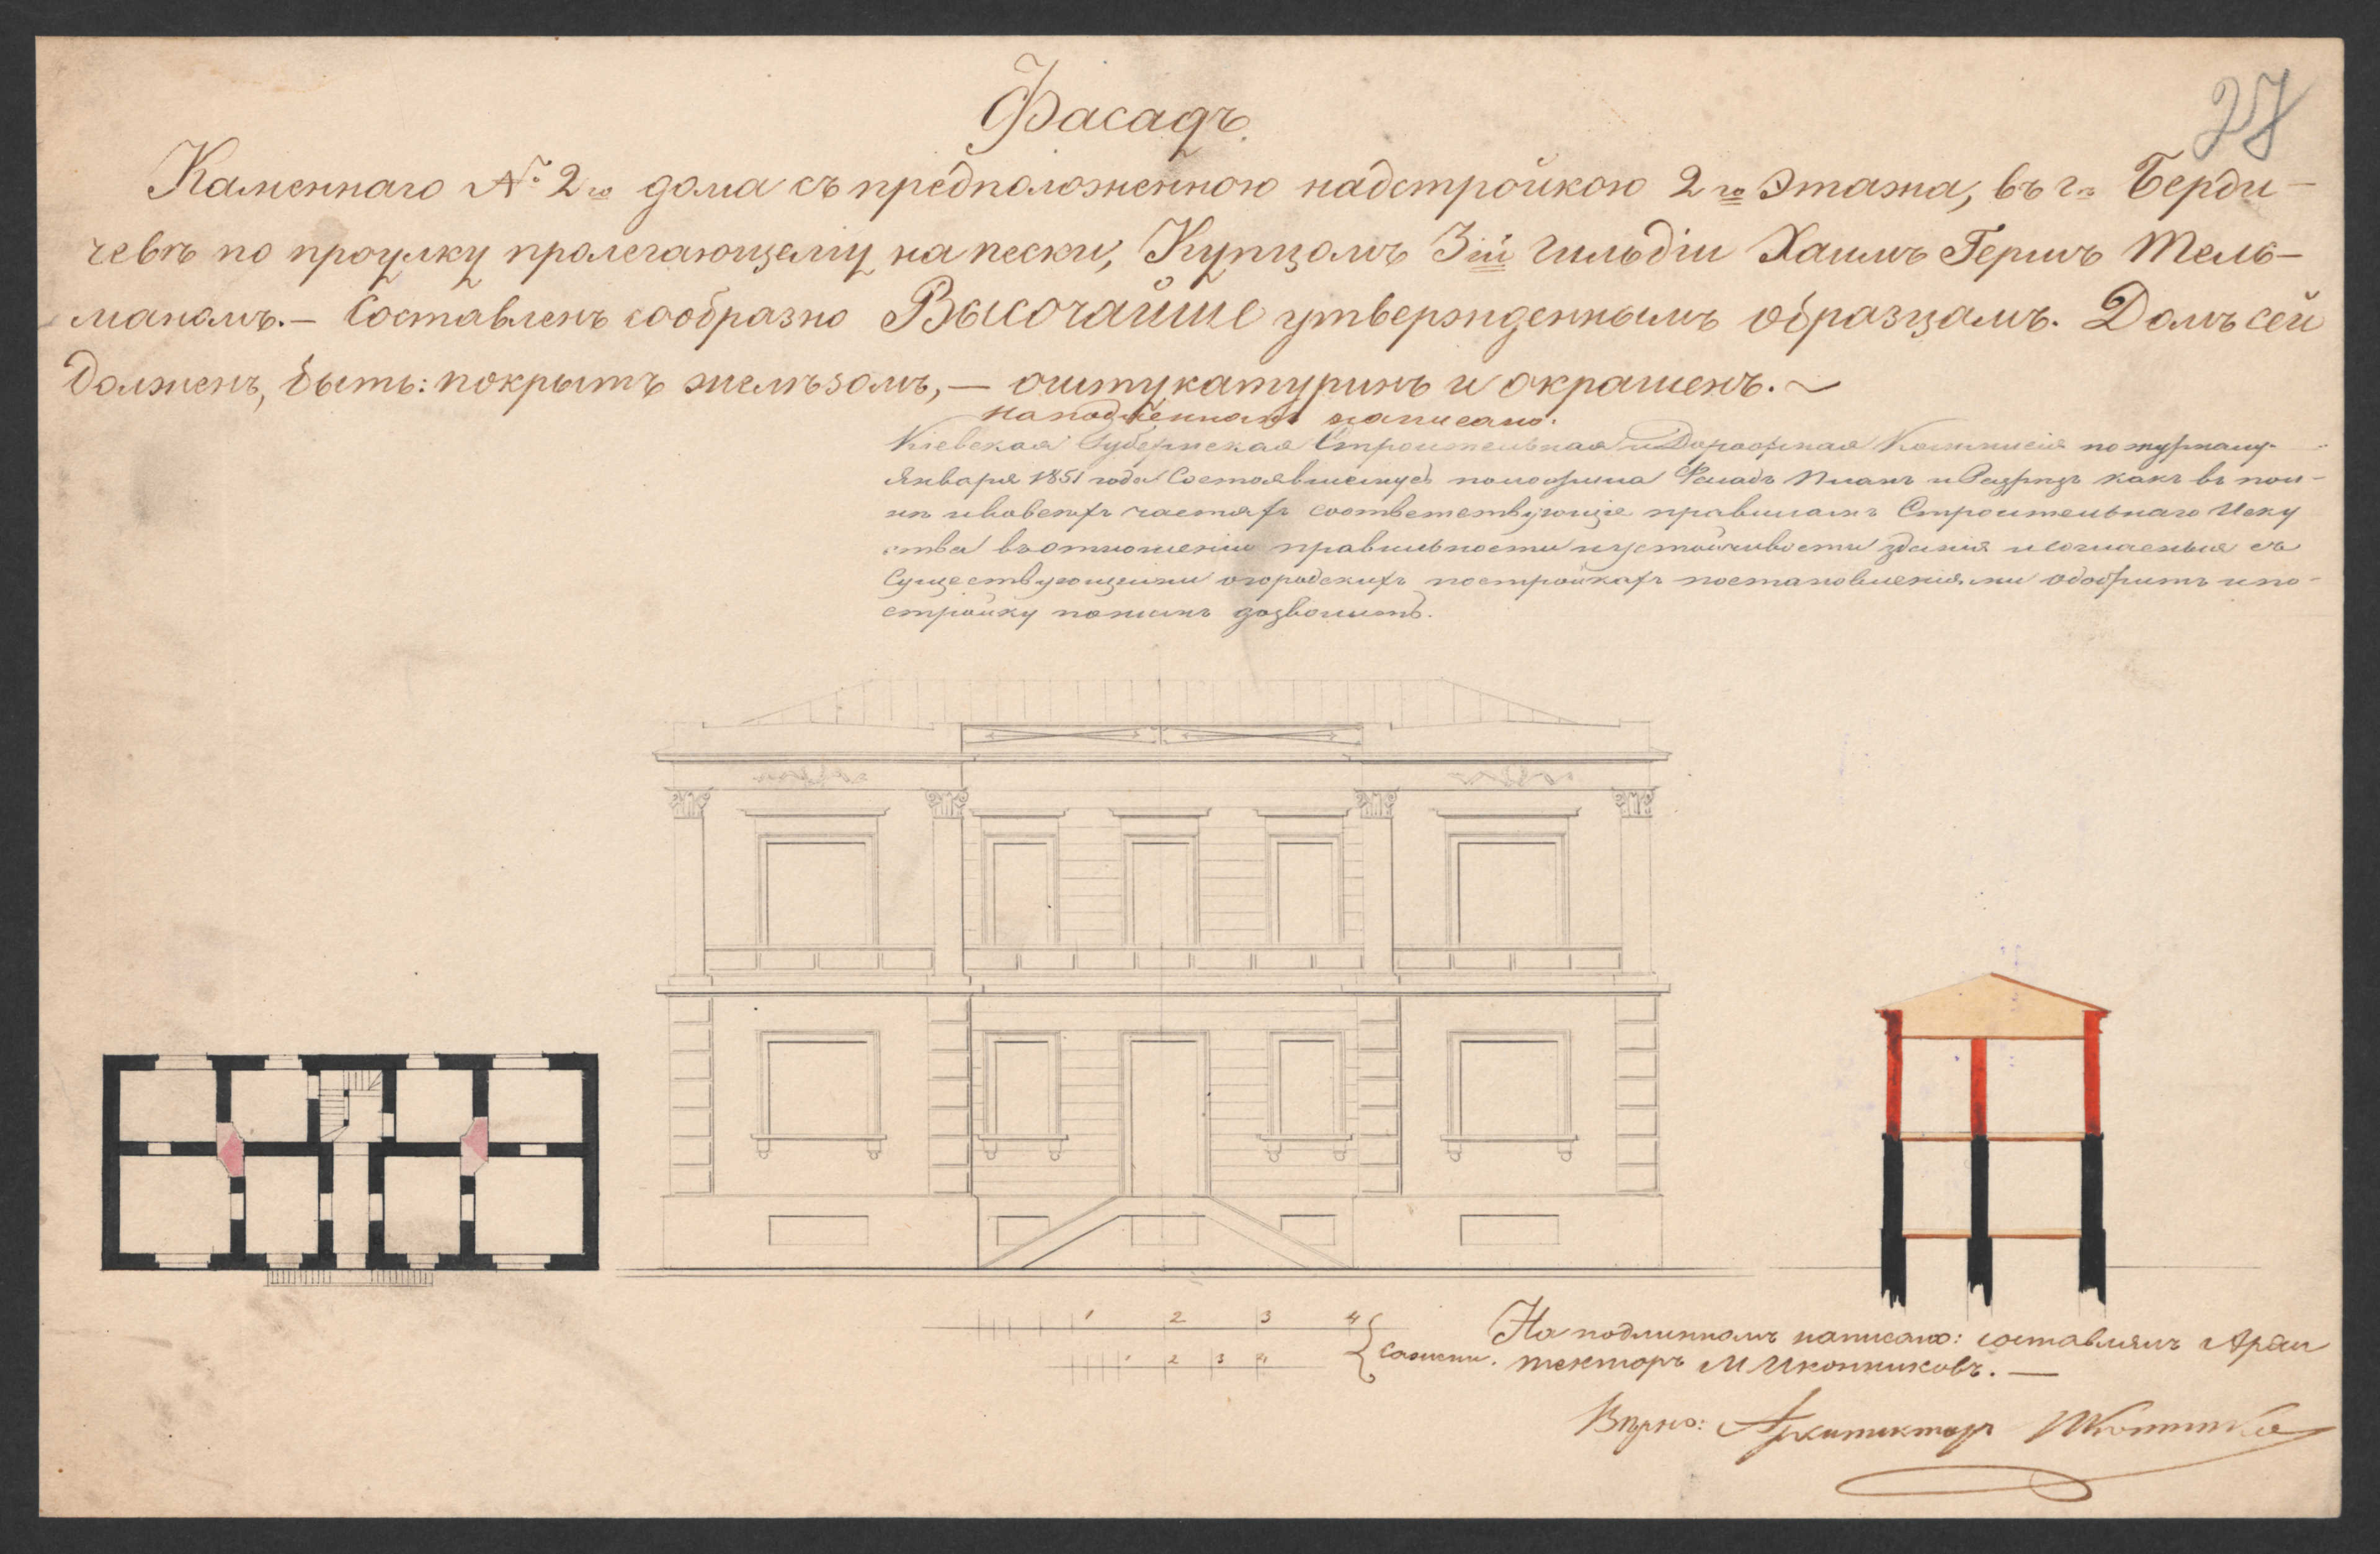 Фасадъ.
27
Каменнаго № 2го дома съ предположенною надстройкою 2го этажа, въ г. Берди-
чевѣ по проулку пролегающему на пески, Купцомъ 3ій гильдіи Хаимъ Гершъ Тель-
маномъ. — Составленъ сообразно Высочайше утвержденнымъ образцамъ. Домъ сей
долженъ, быть: покрытъ желѣзомъ, — оштукатуринъ и окрашенъ. ~
На подленномъ написано:
Кіевская Губернская Строительная и Дорожная Коммисія по журналу
Января 1851 года Состоявшемуся Фасадъ Планъ и Разрѣзъ какъ въ пол-
нѣ частяхъ соответствующіе правиламъ Строительнаго Иску
ства въ отношеніи правильности и устойчивости зданія и согласныя съ
Существующими о городскихъ постройкахъ постановленіями одобрить и по-
стройку по нимъ дозволить.
1 2 3 4
1 2 3 4
Сажени.
На подлинномъ написано: составлялъ Архи
текторъ М Иконниковъ. —
Вѣрно: Архитекторъ Иконнико